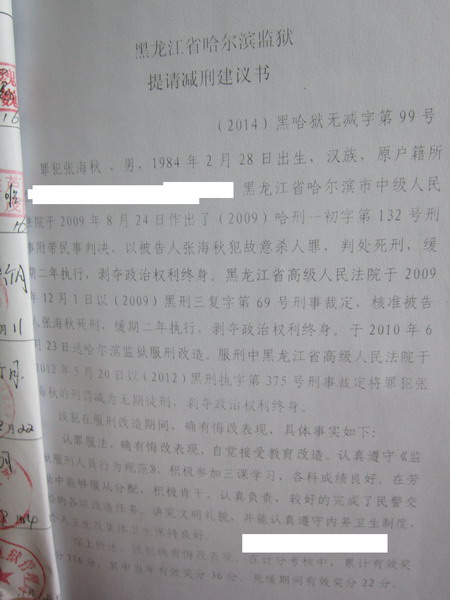 黑龙江省哈尔滨监狱
提请减刑建议书
（2014）黑哈狱无减字第 99 号
罪犯张海秋，男，1984 年 2 月 28 日出生，汉族，原户籍所
黑龙江省哈尔滨市中级人民
法院于 2009 年 8 月 24 日作出了（2009）哈刑一初字第 132 号刑
事附带民事判决，以被告人张海秋犯故意杀人罪，判处死刑，缓
期二年执行，剥夺政治权利终身。黑龙江省高级人民法院于 2009
年 12 月 1 日以（2009）黑刑三复字第 69 号刑事裁定，核准被告
人张海秋死刑，缓期二年执行，剥夺政治权利终身。于 2010 年 6
月 23 日送哈尔滨监狱服刑改造。服刑中黑龙江省高级人民法院于
2012 年 5 月 20 日以（2012）黑刑执字第 375 号刑事裁定将罪犯张
海秋的刑罚减为无期徒刑，剥夺政治权利终身。
该犯在服刑改造期间，确有悔改表现，具体事实如下：
认罪服法，确有悔改表现，自觉接受教育改造。认真遵守《监
狱服刑人员行为规范》，积极参加三课学习，各科成绩良好。在劳
动中能够服从分配，积极肯干，认真负责，较好的完成了民警交
给的各项改造任务。讲究文明礼貌，并能认真遵守内务卫生制度，
个人卫生及集体卫生保持良好。
综上所述，该犯确有悔改表现，在计分考核中，累计有效奖
分 116 分，其中当年有效奖分 36 分，死缓期间有效奖分 22 分。
16
月
月 11
月
月 22
月